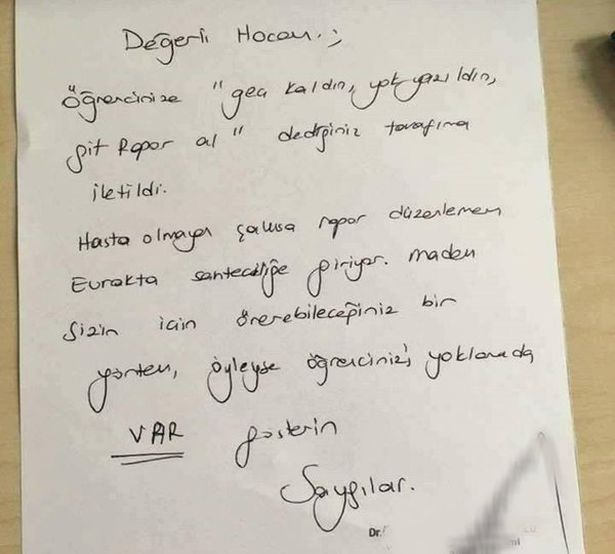 Değerli Hocam :;
Öğrencinize "geç kaldın, yok yazıldın,
git Rapor al" dediğiniz tarafıma
iletildi.
Hasta olmayan şahısa rapor düzenlemem
Evrakta sahteciliğe giriyor. madem
Sizin için önerebileceğiniz bir
yöntem, öyleyse öğrencinizi yoklamada
VAR gösterin
Saygılar.
Dr.